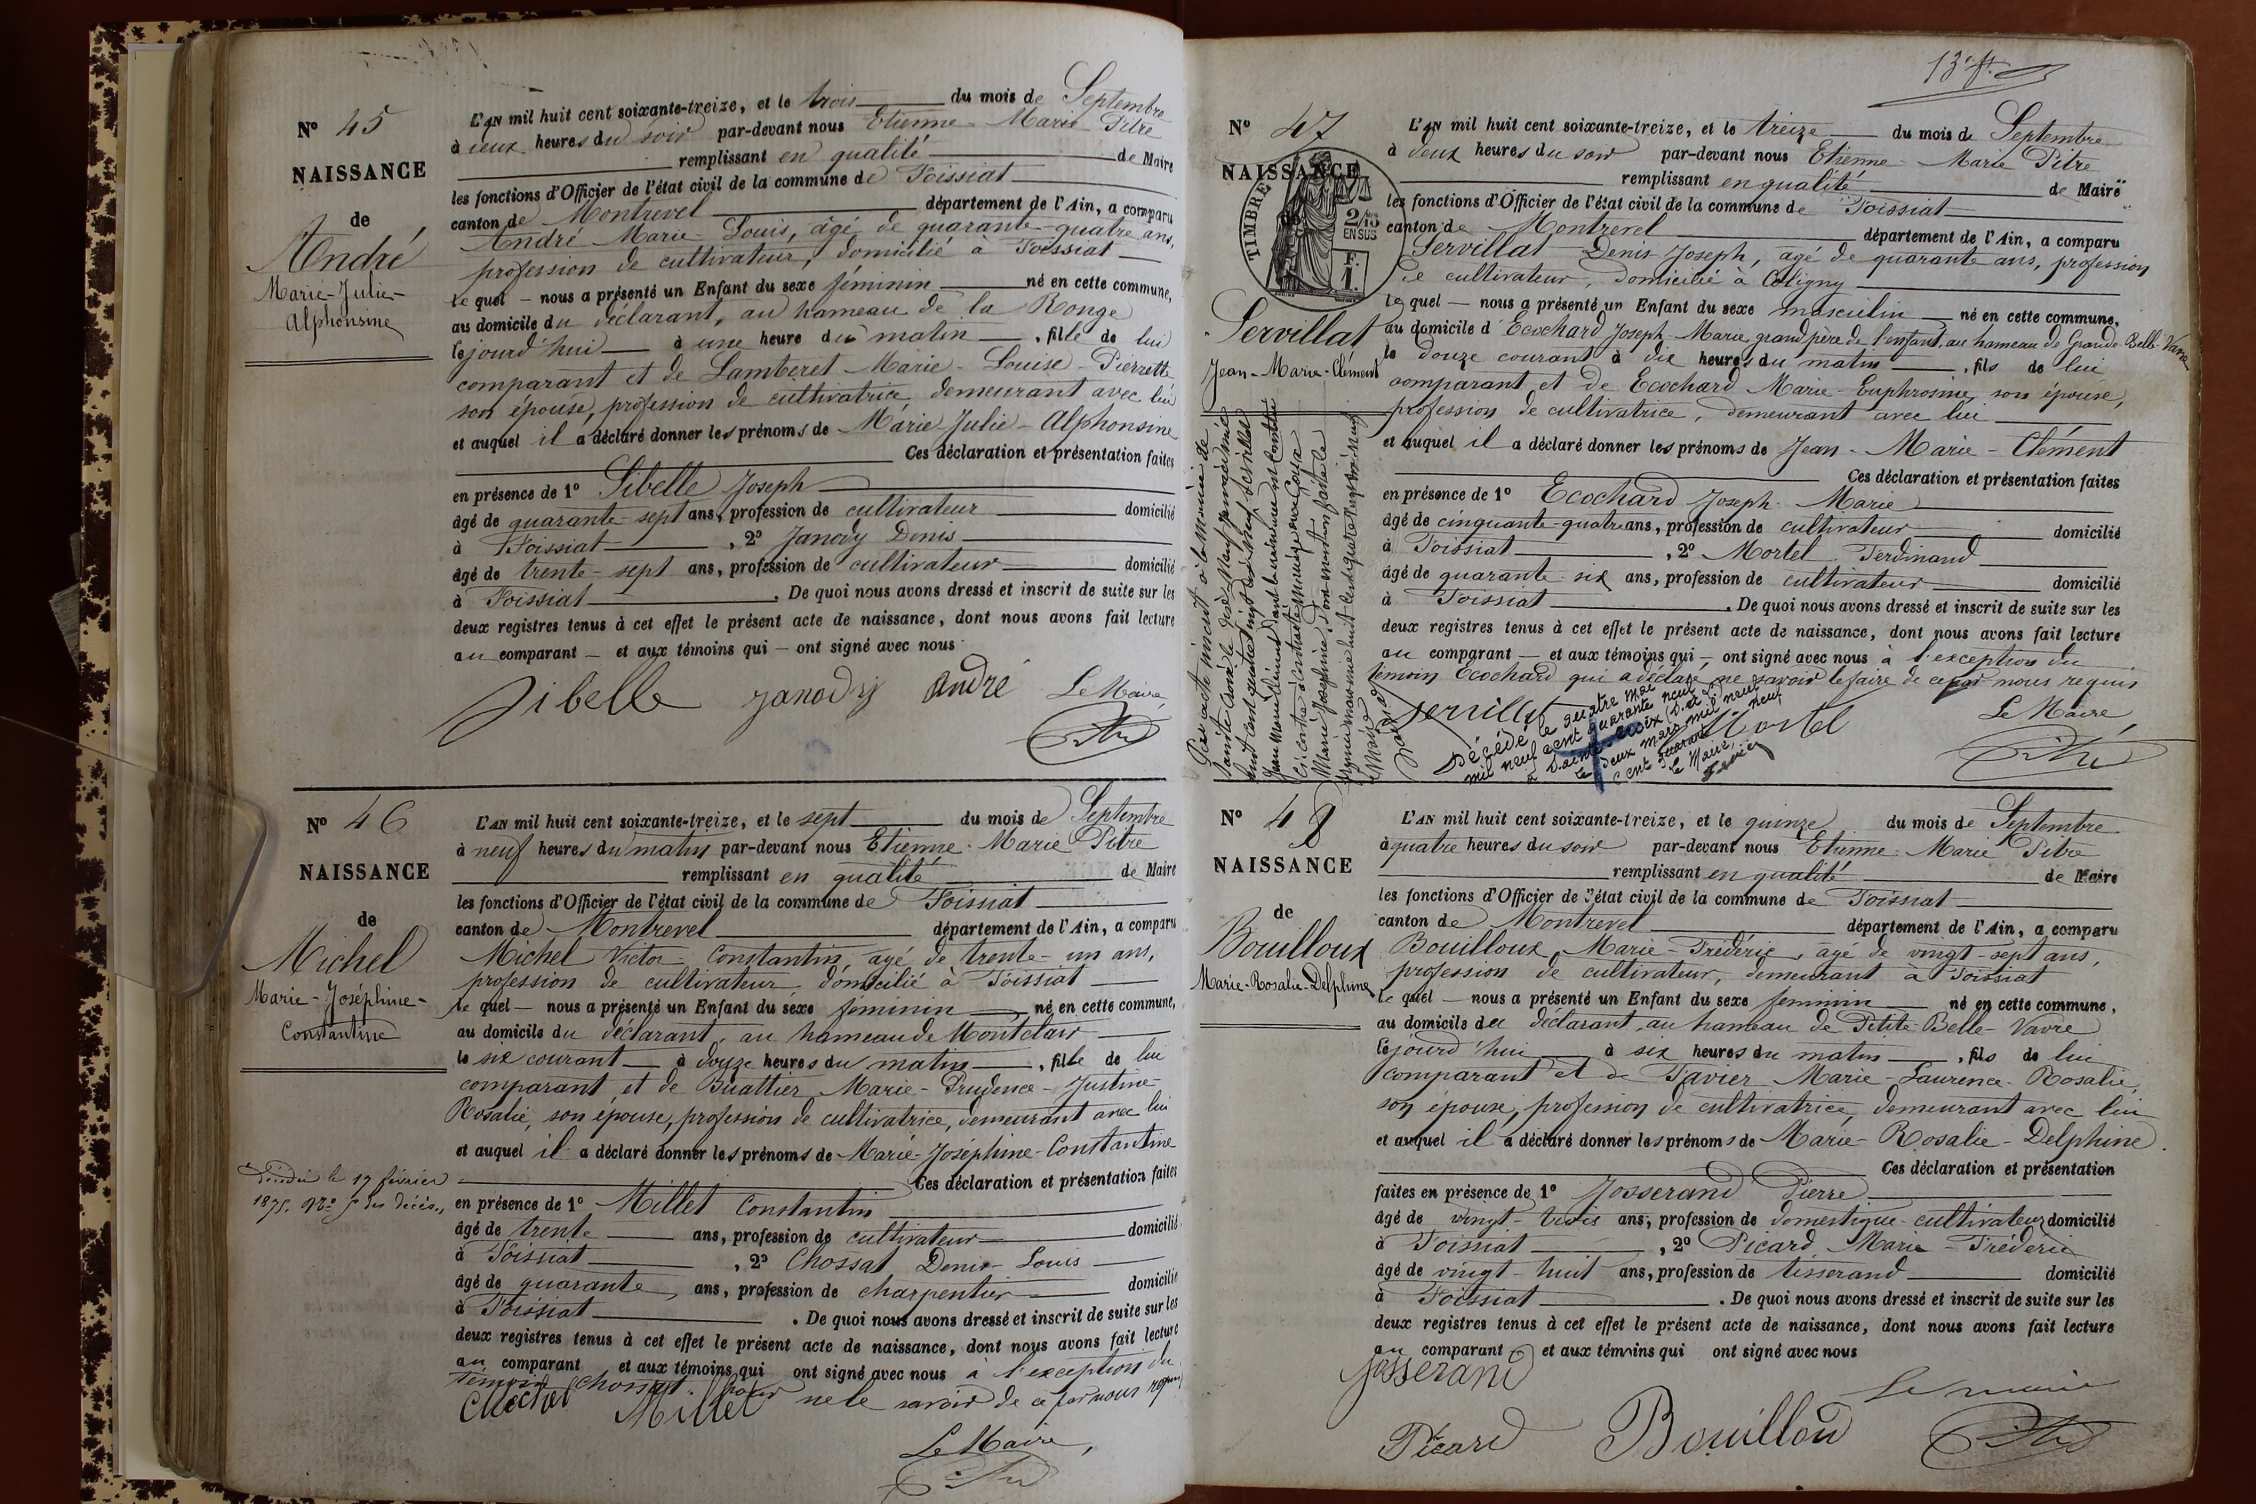 Nº 45
NAISSANCE
de
André
Marie-Julie-
Alphonsine
L'AN mil huit cent soixante-treize, et le trois du mois de Septembre
à deux heures du soir par-devant nous Etienne Marie Pitre
remplissant en qualité de Maire
les fonctions d'Officier de l'état civil de la commune de Foissiat
canton de Montrevel département de l'Ain, a comparu
André Marie-Louis, âgé de quarante-quatre ans,
profession de cultivateur, domicilié à Foissiat
Le quel — nous a présenté un Enfant du sexe féminin né en cette commune,
au domicile du déclarant, au hameau de la Ronge
le jourd'hui à une heure du matin, fille de lui
comparant et de Lamberet Marie-Louise-Pierrette
son épouse, profession de cultivatrice demeurant avec lui
et auquel il a déclaré donner les prénoms de Marie-Julie-Alphonsine
Ces déclaration et présentation faites
en présence de 1º Sibelle Joseph
âgé de quarante-sept ans, profession de cultivateur domicilié
à Foissiat, 2º Janody Denis
âgé de trente-sept ans, profession de cultivateur domicilié
à Foissiat. De quoi nous avons dressé et inscrit de suite sur les
deux registres tenus à cet effet le présent acte de naissance, dont nous avons fait lecture
au comparant — et aux témoins qui — ont signé avec nous
Sibelle Janody André Le Maire
Pitre
Nº 46
NAISSANCE
de
Michel
Marie-Joséphine-
Constantine
L'AN mil huit cent soixante-treize, et le sept du mois de Septembre
à neuf heures du matin par-devant nous Etienne-Marie Pitre
remplissant en qualité de Maire
les fonctions d'Officier de l'état civil de la commune de Foissiat
canton de Montrevel département de l'Ain, a comparu
Michel Victor Constantin, âgé de trente-un ans,
profession de cultivateur domicilié à Foissiat
Le quel — nous a présenté un Enfant du sexe féminin né en cette commune,
au domicile du déclarant, au hameau de Montclair
le six courant à douze heures du matin, fille de lui
comparant et de Buattier Marie-Prudence-Justine-
Rosalie, son épouse, profession de cultivatrice, demeurant avec lui
et auquel il a déclaré donner les prénoms de Marie-Joséphine-Constantine
Ces déclaration et présentation faites
décédée le 17 février
1875. Nº 5 des décès
en présence de 1º Millet Constantin
âgé de trente ans, profession de cultivateur domicilié
à Foissiat, 2º Chossat Denis-Louis
âgé de quarante ans, profession de charpentier domicilié
à Foissiat. De quoi nous avons dressé et inscrit de suite sur les
deux registres tenus à cet effet le présent acte de naissance, dont nous avons fait lecture
au comparant et aux témoins qui ont signé avec nous à l'exception du
témoin Chossat pour ne le savoir de ce par nous requis
Michel Millet
Le Maire,
Pitre
13e ft
Nº 47
NAISSANCE
de
TIMBRE
2/10 EN SUS
F. 1.
Servillat
Jean-Marie-Clément
L'AN mil huit cent soixante-treize, et le treize du mois de Septembre
à deux heures du soir par-devant nous Etienne-Marie Pitre
remplissant en qualité de Maire
les fonctions d'Officier de l'état civil de la commune de Foissiat
canton de Montrevel département de l'Ain, a comparu
Servillat Denis Joseph, âgé de quarante ans, profession
de cultivateur, domicilié à Coligny
Le quel — nous a présenté un Enfant du sexe masculin né en cette commune,
au domicile d'Ecochard Joseph-Marie grand père de l'enfant, au hameau de Grande Belle-Vavre
le douze courant à dix heures du matin, fils de lui
comparant et de Ecochard Marie-Euphrosine son épouse,
profession de cultivatrice, demeurant avec lui
et auquel il a déclaré donner les prénoms de Jean-Marie-Clément
Ces déclaration et présentation faites
en présence de 1º Ecochard Joseph-Marie
âgé de cinquante-quatre ans, profession de cultivateur domicilié
à Foissiat, 2º Mortel Ferdinand
âgé de quarante-six ans, profession de cultivateur domicilié
à Foissiat. De quoi nous avons dressé et inscrit de suite sur les
deux registres tenus à cet effet le présent acte de naissance, dont nous avons fait lecture
au comparant — et aux témoins qui — ont signé avec nous à l'exception du
témoin Ecochard qui a déclaré ne savoir le faire de ce par nous requis
Par acte inscrit à la mairie de
Sainte Croix le dix Neuf
huit cent quatre vingt dix neuf Servillat
Jean Marie Clément dont la naissance est constatée
ci-contre a contracté mariage avec Goyat
Marie Joséphine, dont mention faite le
Le Maire
Servillat Mortel
Décédé le quatre mai
mil neuf cent quarante neuf
à Sainte-Croix
Le deux mars mil neuf
cent quarante neuf
Le Maire,
Le Maire,
Pitre
Nº 48
NAISSANCE
de
Bouilloux
Marie-Rosalie-Delphine
L'AN mil huit cent soixante-treize, et le quinze du mois de Septembre
à quatre heures du soir par-devant nous Etienne-Marie Pitre
remplissant en qualité de Maire
les fonctions d'Officier de l'état civil de la commune de Foissiat
canton de Montrevel département de l'Ain, a comparu
Bouilloux Marie-Frédéric, âgé de vingt-sept ans,
profession de cultivateur, demeurant à Foissiat
Le quel — nous a présenté un Enfant du sexe féminin né en cette commune,
au domicile du déclarant, au hameau de Petite-Belle-Vavre
le jourd'hui à six heures du matin, fils de lui
comparant et de Favier Marie-Laurence-Rosalie,
son épouse, profession de cultivatrice, demeurant avec lui
et auquel il a déclaré donner les prénoms de Marie-Rosalie-Delphine.
Ces déclaration et présentation
faites en présence de 1º Josserand Pierre
âgé de vingt-trois ans, profession de domestique-cultivateur domicilié
à Foissiat, 2º Picard Marie-Frédéric
âgé de vingt-huit ans, profession de tisserand domicilié
à Foissiat. De quoi nous avons dressé et inscrit de suite sur les
deux registres tenus à cet effet le présent acte de naissance, dont nous avons fait lecture
au comparant et aux témoins qui ont signé avec nous
Josserand
Le maire
Picard Bouilloud Pitre